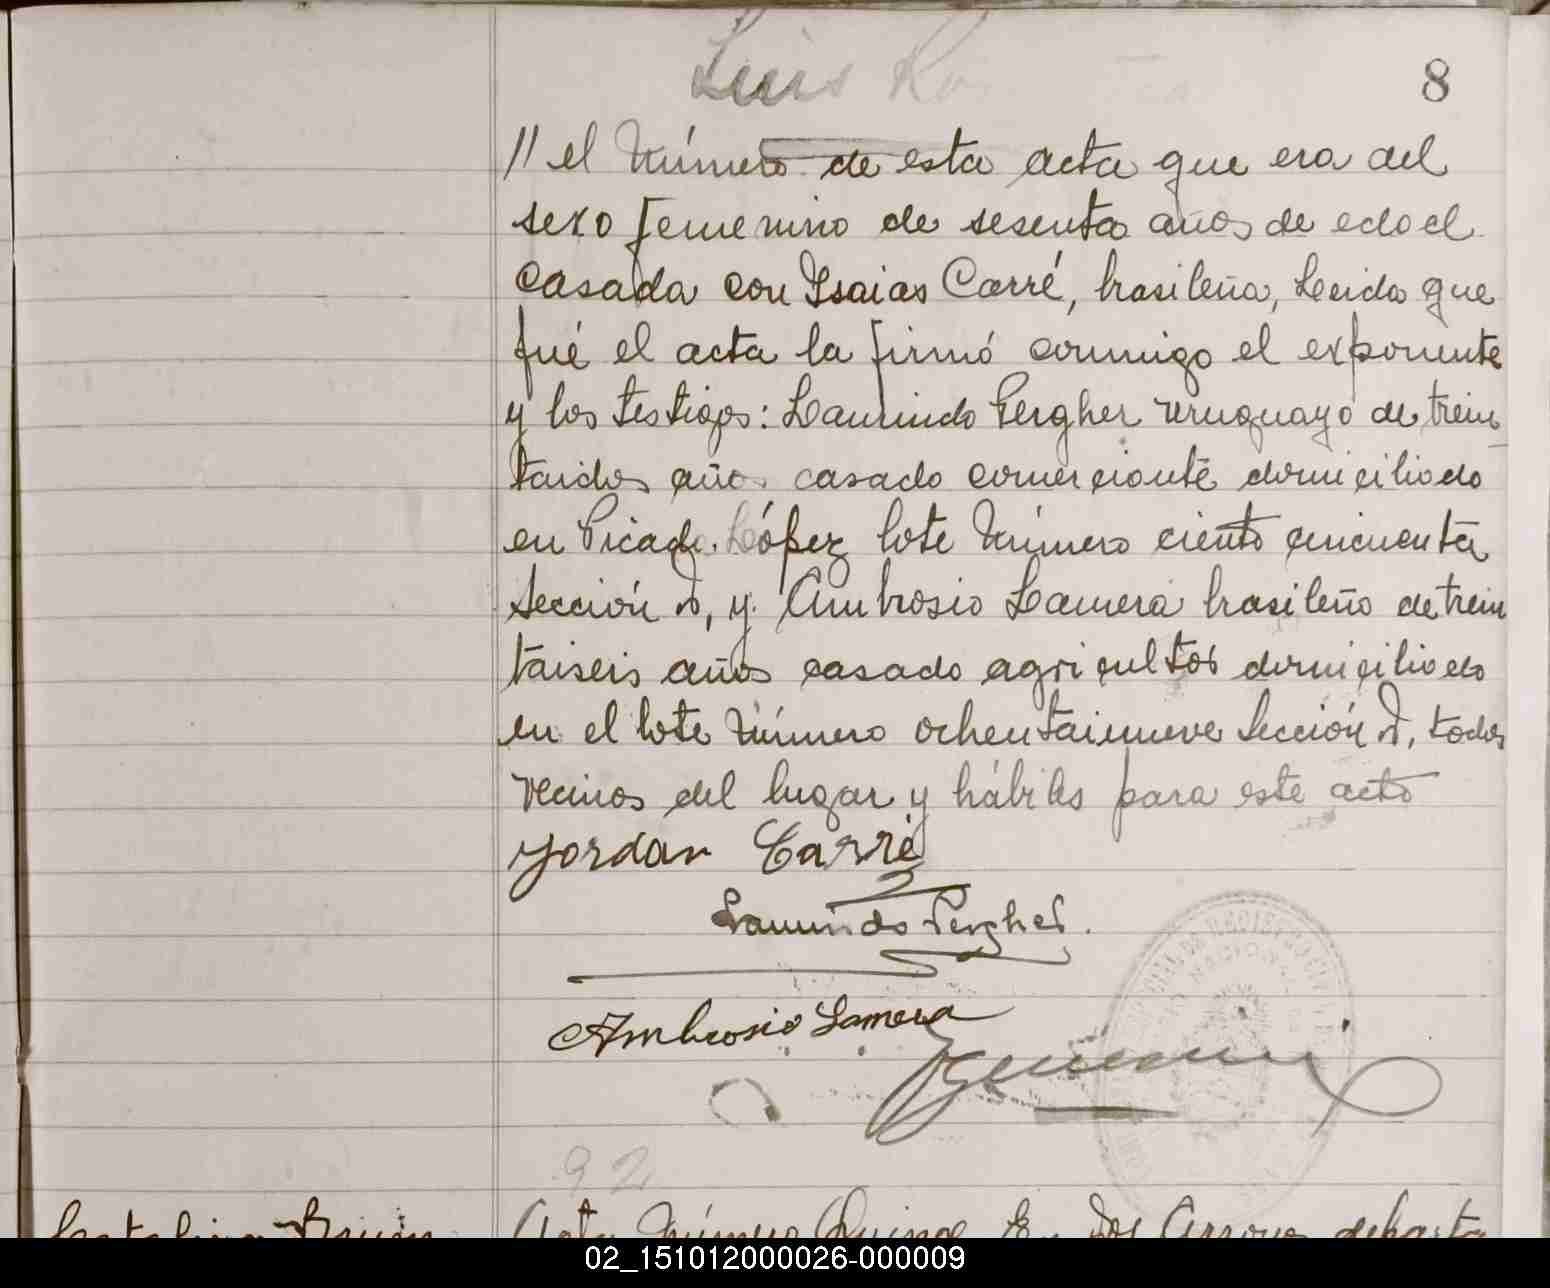 Luis
8
// el número de esta acta que era del
sexo femenino de sesenta años de edad
casada con Isaias Carré, brasileña, Leida que
fué el acta la firmó conmigo el exponente
y los testigos: Laurindo Pergher uruguayo de trein
taidos años casado comerciante domiciliado
en Picada López lote número ciento cincuenta
sección D, y Ambrosio Lamera brasileño de trein
taiseis años casado agricultor domiciliado
en el lote número ochentainueve sección D, todos
vecinos del lugar y hábiles para este acto
Yordan Carré
Laurindo Pergher.
Ambrosio Lamera
92
Acta Número Quince En Dos Arroyos departa
02_151012000026-000009